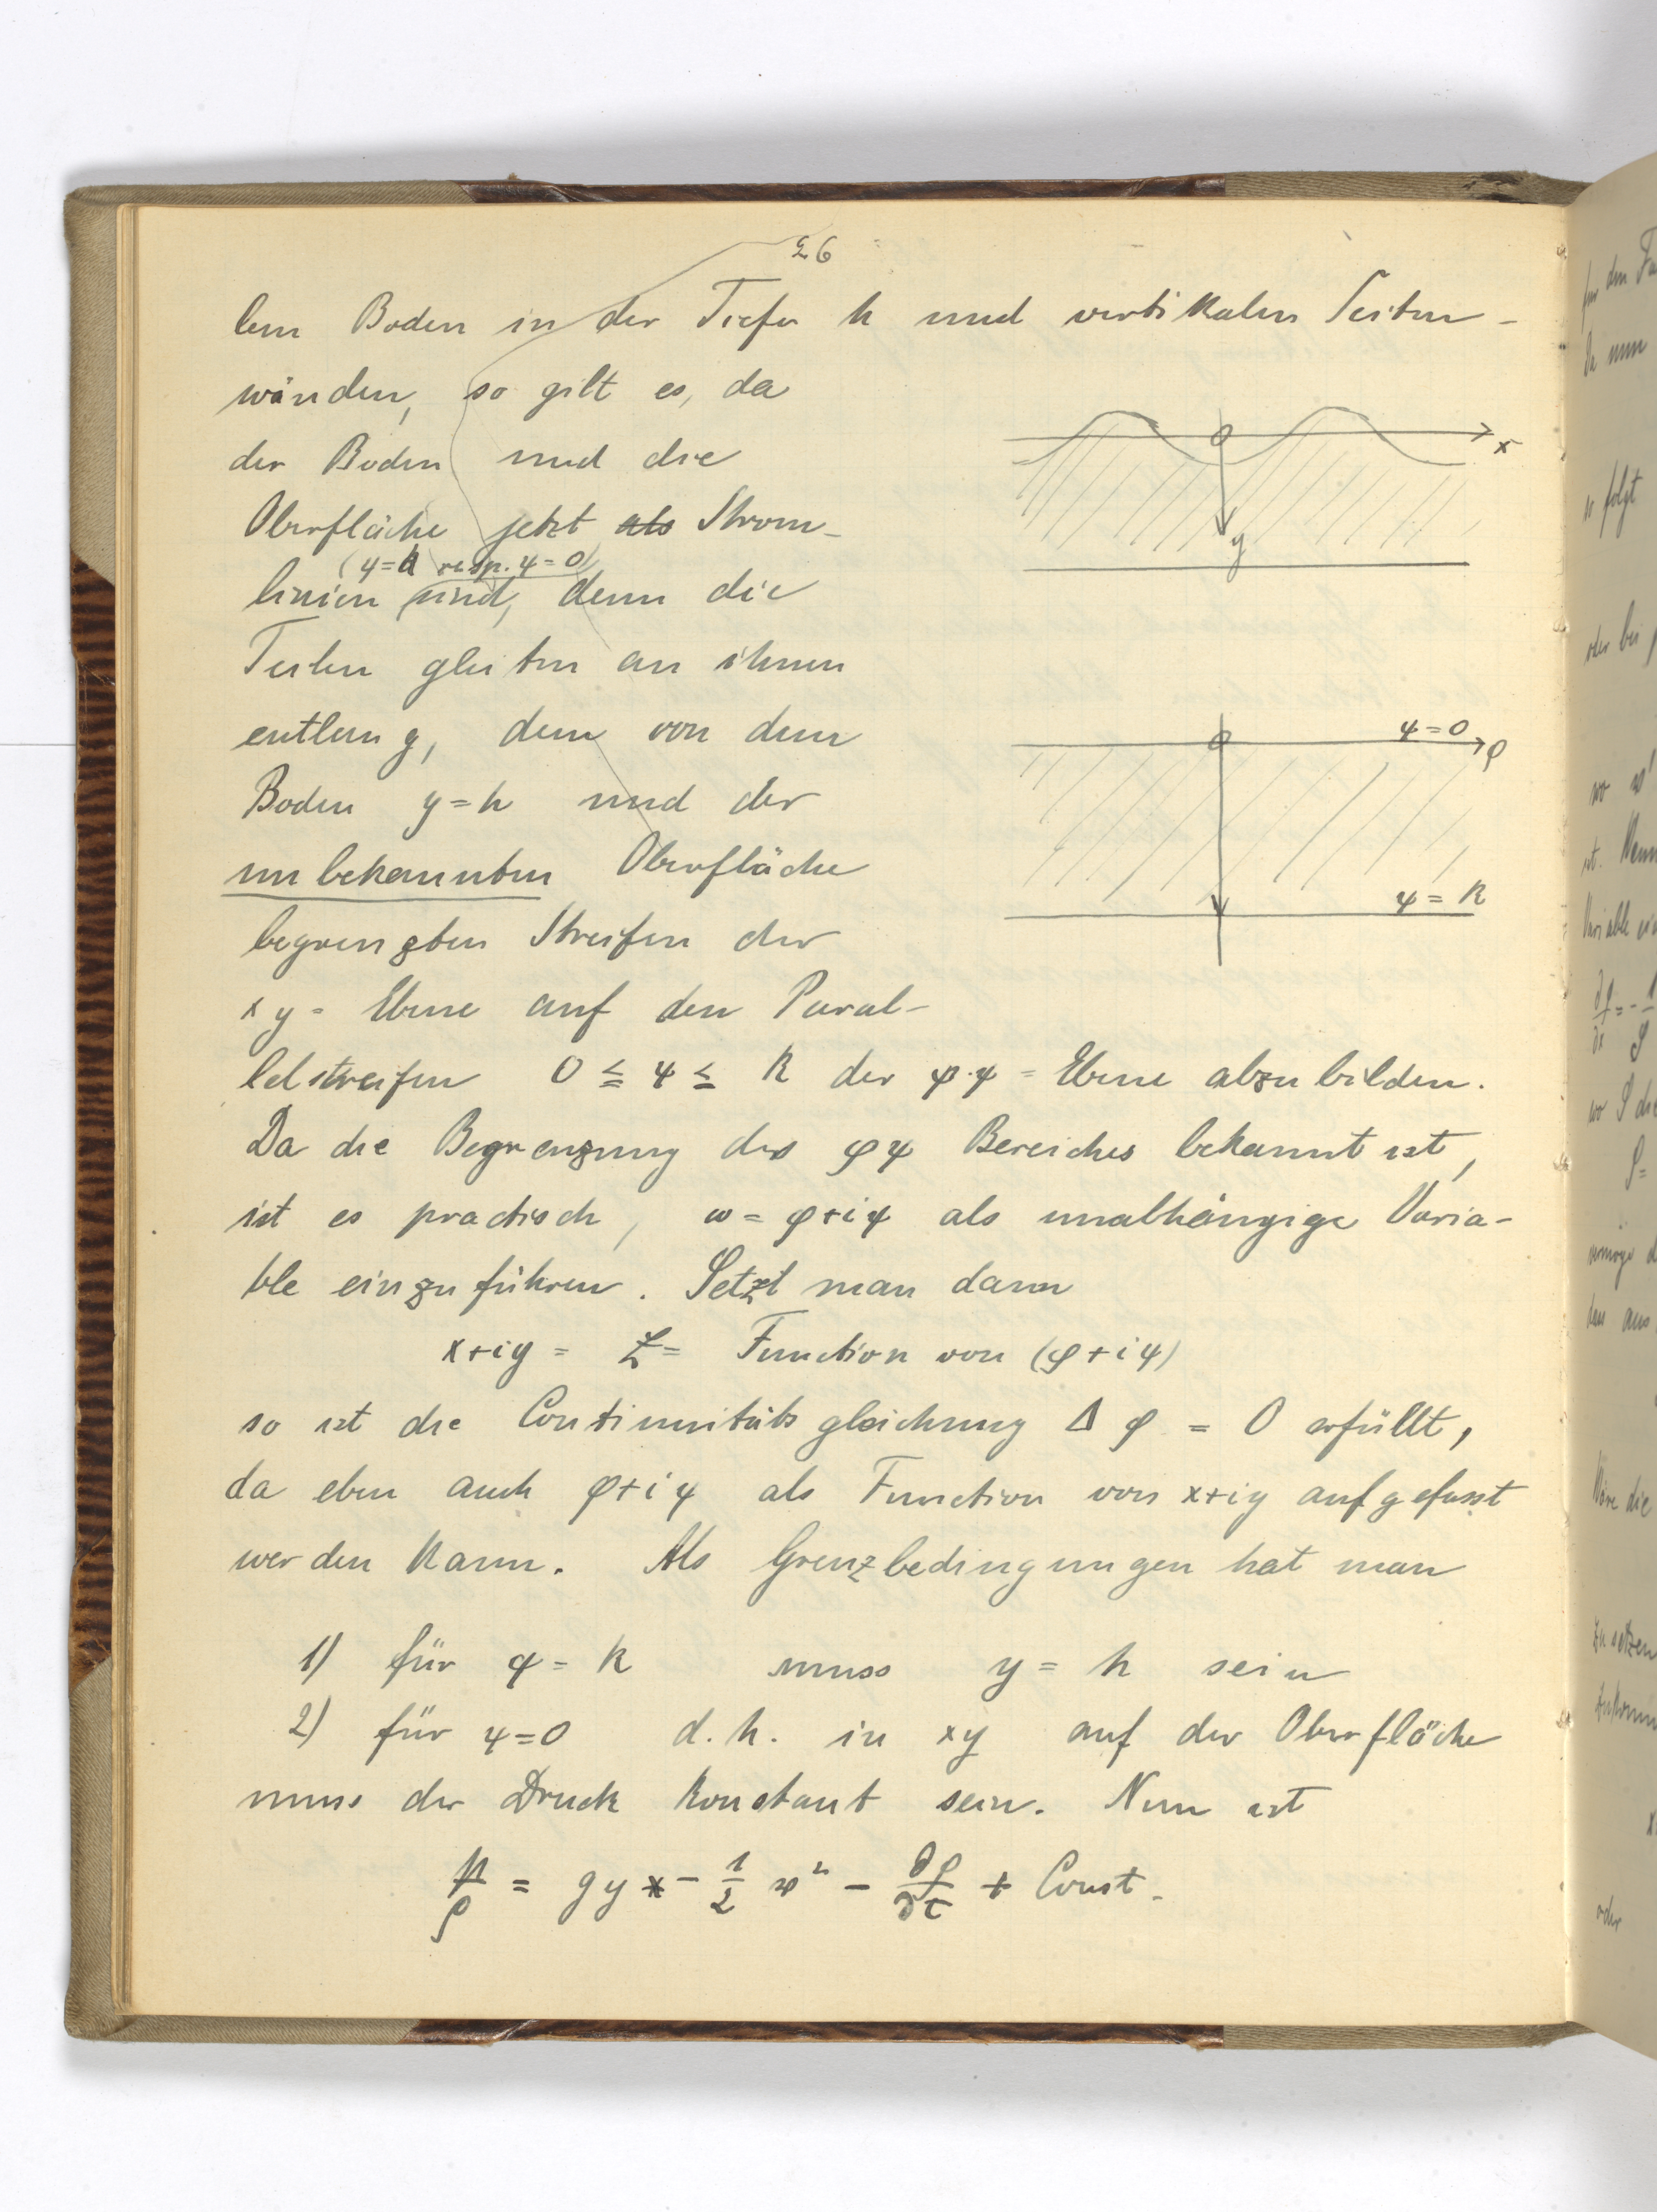 26
lem Boden in der Tiefe h und vertikalen Seiten-
wänden, so gilt es, da
der Boden und die
Oberfläche jetzt als Strom-
(ψ=k resp. ψ=0)
linien sind, denn die
Teilen gleiten an ihnen
entlang, den von dem
Boden y=h und der
unbekannten Oberfläche
begrenzten Streifen der
xy-Ebene auf den Paral-
lelstreifen 0 ≦ ψ ≦ k der φ.ψ-Ebene abzubilden.
Da die Begrenzung des φψ Bereiches bekannt ist,
ist es practisch, w = φ+iψ als unabhängige Varia-
ble einzuführen. Setzt man dann
x+iy = z = Function von (φ+iψ)
so ist die Continuitätsgleichung Δ φ = 0 erfüllt,
da eben auch φ+iψ als Function von x+iy aufgefasst
werden kann. Als Grenzbedingungen hat man
1) für ψ = k muss y = h sein
2) für ψ=0 d.h. in xy auf der Oberfläche
muss der Druck konstant sein. Nun ist
p/ρ = gy - 1/2 w² - ∂φ/∂t + Const.
x
y
ψ=0
φ
ψ=k